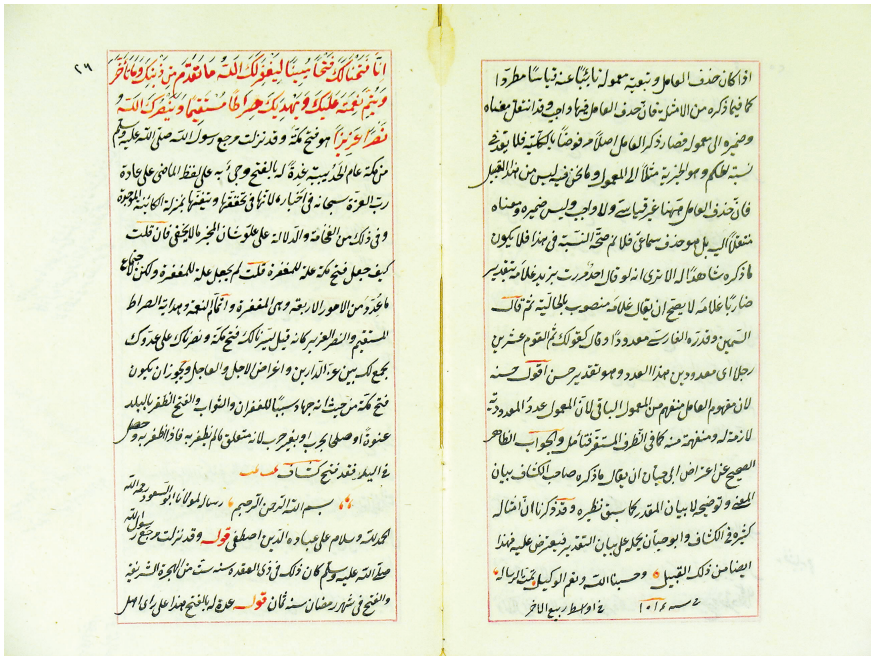 اذا كان حذف العامل وتبعية معموله نائبا عنه قياسا مطردا
كما فيما ذكره من الامثلة فان حذف العامل فيها واجب وقد انتقل معناه
وضميره الى معموله فصار ذكر العامل اصلا مرفوضا بالكلية فلا بعد في
نسبة الحكم وهو الخبرية مثلا الى المعمول وما نحن فيه ليس من هذا القبيل
فان حذف العامل ههنا غير قياسى ولا واجب وليس ضميره ومعناه
منتقلا اليه بل هو حذف سماعى فلا تم صحة النسبة فى هذا فلا يكون
ما ذكره شاهدا له الا ترى انه لو قال احد مررت بزيد غلامه بتقدير
ضاربا غلامه لا يصح ان يقال غلامه منصوب بالحالية ثم قال
السمين وقدره الفارسى معدودا وقال كقولك تم القوم عشرين
رجلا اى معدودين هذا العدد وهو تقدير حسن اقول حسنه
لان مفهوم العامل منفهم من المعمول الباقى لان المعمول عدد المعدودية
لازمة له ومنفهمة منه كما فى الظرف المستقر فتأمل والجواب الظاهر
الصحيح عن اعتراض ابى حيان ان يقال ما ذكره صاحب الكشاف بيان
المعنى وتوضيحه لا بيان المقدر كما سبق نظيره وقد ذكرنا ان امثاله
كثيرة فى الكشاف وابو حيان يحمله على بيان التقدير فيعترض عليه فهذا
ايضا من ذلك القبيل وحسبنا الله ونعم الوكيل تمت الرسالة
فى اواسط ربيع الآخر فى سنة ١٠١٤
٢٦
انا فتحنا لك فتحا مبينا ليغفر لك الله ما تقدم من ذنبك وما تأخر
ويتم نعمته عليك ويهديك صراطا مستقيما وينصرك الله
نصرا عزيزا هو فتح مكة وقد نزلت مرجع رسول الله صلى الله عليه وسلم
من مكة عام الحديبية عدة له بالفتح وجئ به على لفظ الماضى على عادة
رب العزة سبحانه فى اخباره لانها فى تحققها وتيقنها بمنزلة الكائنة الموجودة
وفى ذلك من الفخامة والدلالة على علو شان المخبر ما لا يخفى فان قلت
كيف جعل فتح مكة علة للمغفرة قلت لم يجعل علة للمغفرة ولكن لاجتماع
ما عدد من الامور الاربعة وهى المغفرة واتمام النعمة وهداية الصراط
المستقيم والنصر العزيز كانه قيل يسرنا لك فتح مكة ونصرناك على عدوك
لجمع لك بين عز الدارين واغراض الآجل والعاجل ويجوز ان يكون
فتح مكة من حيث انه جهاد سببا للغفران والثواب والفتح الظفر بالبلد
عنوة او صلحا بحرب او بغير حرب لانه منغلق ما لم يظفر به فاذا ظفر به وحصل
فى اليد فقد فتح كشاف
بسم الله الرحمن الرحيم رسالة لمولانا ابو السعود رحمه الله
الحمد لله وسلام على عباده الذين اصطفى قوله وقد نزلت مرجع رسول الله
صلى الله عليه وسلم كان ذلك فى ذى القعدة سنة ست من الهجرة الشريفة
والفتح فى شهر رمضان سنة ثمان قوله عدة له بالفتح هذا على راى اهل